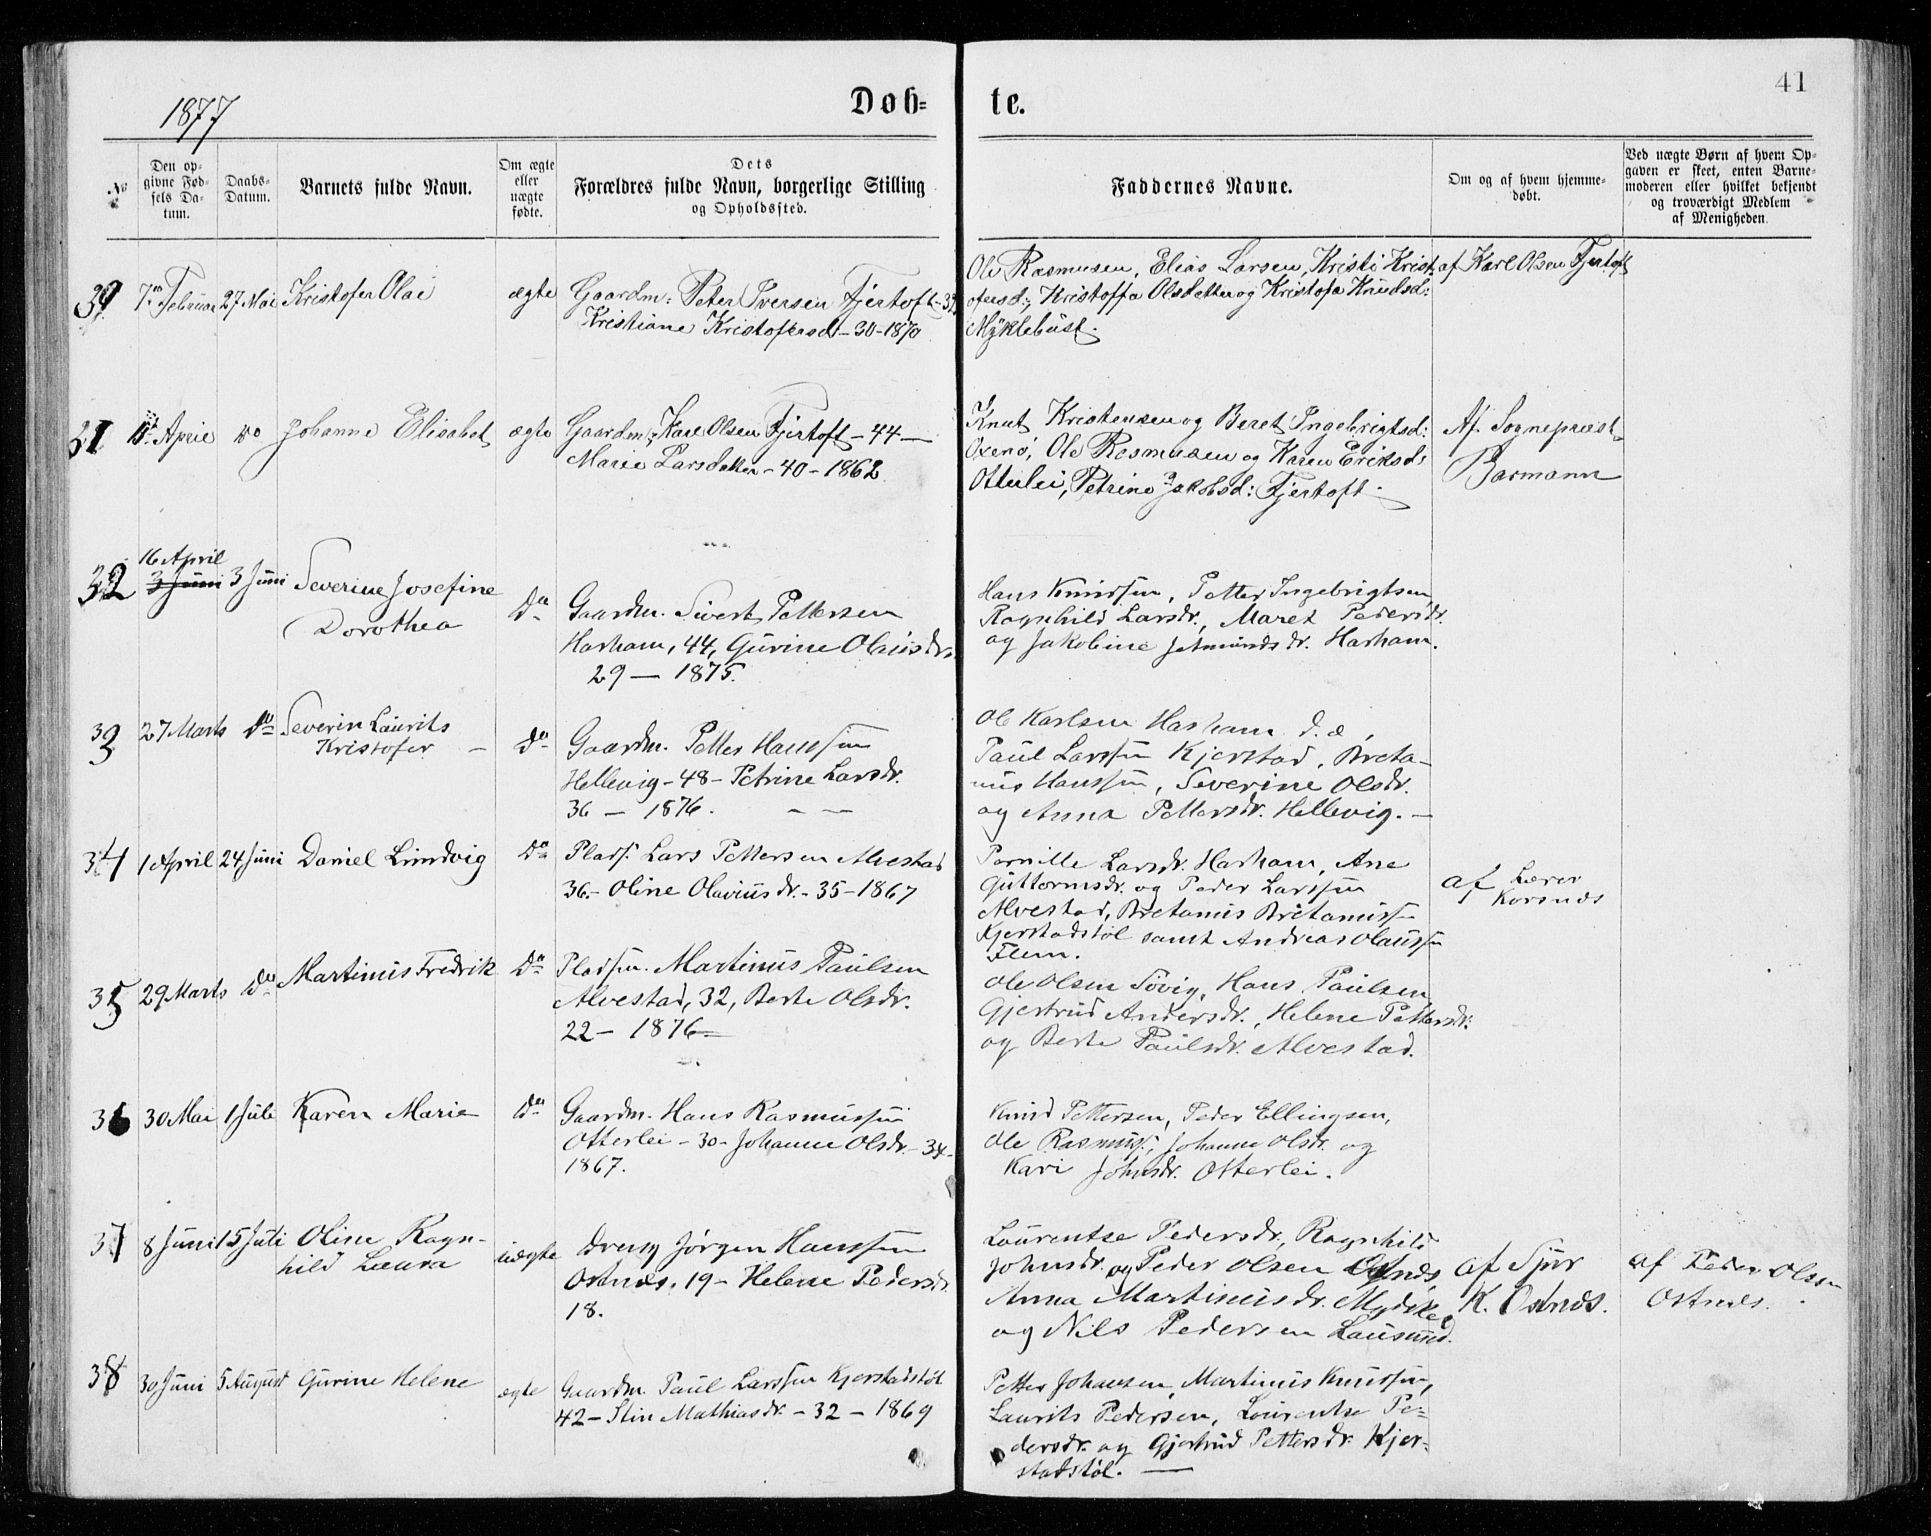 41
1877
Døb-
te.
No
Den op-
givne Fød-
sels Da-
tum.
Daabs-
Datum.
Barnets fulde Navn.
Om ægte
eller
uægte
fødte.
Dets
Forældres fulde Navn, borgerlige Stilling
og Opholdssted.
Faddernes Navne.
Om og af hvem hjemme-
døbt.
Ved uægte Børn af hvem Op-
gaven er skeet, enten Barne-
moderen eller hvilket bekjendt
og troværdigt Medlem
af Menigheden.
7de Februar 27 Mai Kristofer Olai ægte
Gaardm: Peter Iversen Fjertoft
Kristiane Kristofersd - 30 - 1870
Ole Rasmussen, Elias Larsen, Kristi Krist
ofersd:, Kristoffa Olsdatter og Kristofa Knudsd:
Myklebust.
af Karl Olsen Fjertoft
31 April do Johanne Elisabet ægte
Gaardm: Karl Olsen Fjertoft - 44 -
Marie Larsdatter - 40 - 1862
Knut Kristensen og Beret Ingebrigtsd:
Oxenø, Ole Rasmussen og Karen Eriksd:
Otterlei, Petrine Jakobsd: Fjertoft.
Af Sognepræst
Barmann
32
16 April
3 Juni 3 Juni Severine Josefine
Dorothea
Do
Gaardm. Sivert Pettersen
Harham, 44, Gurine Olausdr.
29 - 1875.
Hans Knudsen, Petter Ingebrigtsen
Ragnhild Larsdr., Maret Pedersdr.
og Jakobine Jetmundsdr. Harham.
33 27 Marts Do Severin Laurits
Kristofer - Do
Gaardm. Petter Hanssen
Hellevig - 48 - Petrine Larsdr.
36 - 1876. - -
Ole Karlsen Harham d. æ,
Paul Larssen Kjerstad, Breta-
nus Hanssen, Severine Olsdr.
og Anna Pettersdr. Hellevig. -
34 1 April 24 Juni Daniel Lindvig Do
Plads. Lars Pettersen Alvestad
36 - Oline Olaviusdr. - 35 - 1867
Pernille Larsdr. Harham, Ane
Guttormsdr. og Peder Larssen
Alvestad, Bretanus Bretanuss
Kjerstadstøl samt Andreas Olaussen
Flem.
af Lærer
Korsnes
35 29 Marts Do Martinus Fredrik Do
Pladsm. Martinus Paulsen
Alvestad, 32, Berte Olsdr.
22 - 1876 -
Ole Olsen Søvig, Hans Paulsen
Gjertrud Andersdr., Helene Pettersdr.
og Berte Paulsdr. Alvestad.
36 30 Mai 1 Juli Karen Marie Do
Gaardm. Hans Rasmussen
Otterlei - 30 - Johanne Olsdr. - 34 -
1867.
Knud Pettersen, Peder Ellingsen,
Ole Rasmuss, Johanne Olsdr. og
Kari Johnsdr. Otterlei.
37 8 Juni 15 Juli Oline Ragn-
hild Laura uægte
Dreng Jørgen Hanssen
Ostnæs, 19 - Helene Pedersdr.
18.
Laurentse Pedersdr., Ragnhild
Johnsdr. og Peder Olsen Ostnæs,
Anna Martinusdr.
og Nils Pedersen Lausund.
af Sjur
K. Ostnæs.
af Peder Olsen
Ostnæs.
38 30 Juni 5 August Gurine Helene ægte
Gaardm. Paul Larssen Kjerstadstøl
42 - Stin Mathiasdr. - 32 - 1869
Petter Johansen, Martinus Knudsen,
Laurits Pedersen, Laurentse Pe-
dersdr. og Gjertrud Pettersdr. Kjer-
stadstøl. -